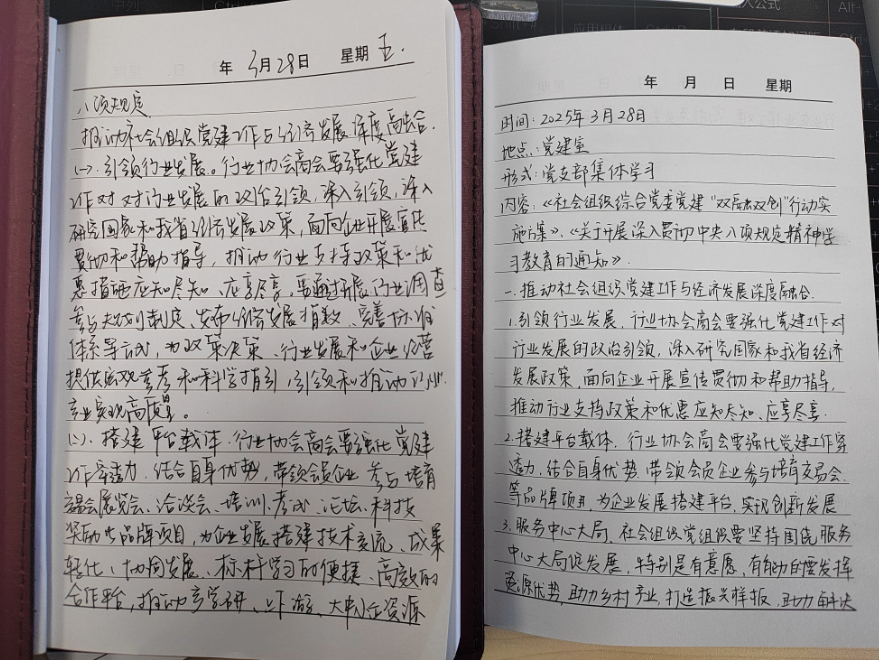 年 3月28日 星期 五.
八项规定
推动社会组织党建工作与经济发展深度融合.
(一). 引领行业发展。行业协会商会要强化党建
工作对对行业发展的政治引领, 深入引领, 深入
研究国家和我省经济发展政策, 面向企业开展宣传
贯彻和帮助指导, 推动行业支持政策和优
惠措施应知尽知、应享尽享, 要通过开展行业调查
参与规划制定、发布经济发展指数、完善标准
体系等方式, 为政策决策、行业发展和企业经营
提供客观参考和科学指引, 引领和推动行业
产业实现高质量。
(二). 搭建平台载体. 行业协会商会要强化党建
工作穿透力. 结合自身优势, 带领会员企业参与培育
交易会展览会、洽谈会、培训、考试、论坛、科技
奖励等品牌项目, 为企业发展搭建技术交流、成果
转化、协同发展、标杆学习的便捷、高效的
合作平台, 推动产学研、上下游、大中小企资源
年 月 日 星期
时间: 2025年3月28日
地点: 党建室
形式: 党支部集体学习
内容:《社会组织综合党委党建“双层双创”行动实
施方案》、《关于开展深入贯彻中央八项规定精神学
习教育的通知》.
一. 推动社会组织党建工作与经济发展深度融合.
1. 引领行业发展. 行业协会商会要强化党建工作对
行业发展的政治引领, 深入研究国家和我省经济
发展政策, 面向企业开展宣传贯彻和帮助指导,
推动行业支持政策和优惠应知尽知、应享尽享.
2. 搭建平台载体. 行业协会商会要强化党建工作穿
透力, 结合自身优势. 带领会员企业参与培育交易会.
等品牌项目, 为企业发展搭建平台, 实现创新发展
3. 服务中心大局, 社会组织党组织要坚持围绕服务
中心大局促发展, 特别是有意愿, 有能力的要发挥
资源优势, 助力乡村产业, 打造振兴样板, 助力解决